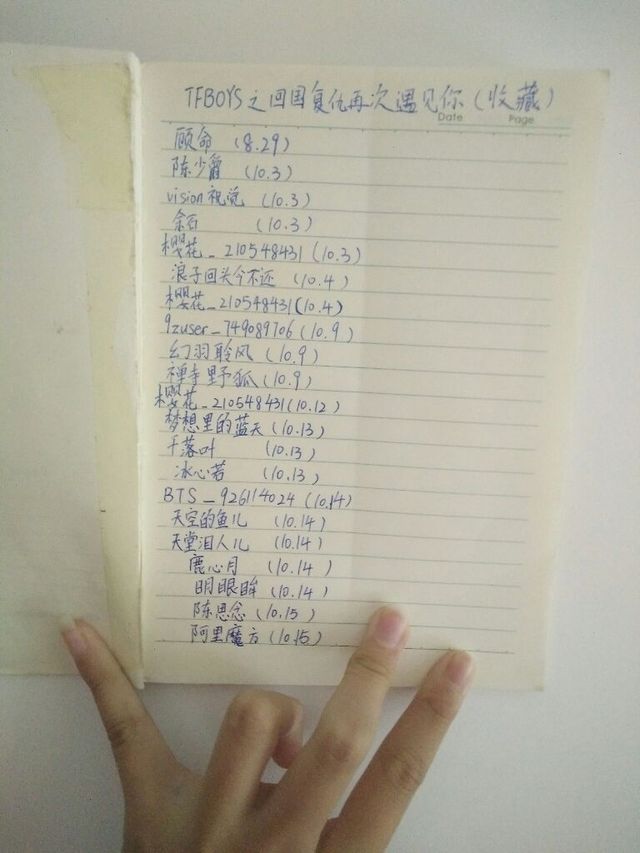 TFBOYS之回国复仇再次遇见你(收藏)
Date Page
顾命 (8.29)
陈少爵 (10.3)
vision视觉 (10.3)
余百 (10.3)
樱花_210548431(10.3)
浪子回头今不还 (10.4)
樱花_210548431(10.4)
9zuser_749089706(10.9)
幻羽聆风(10.9)
禅寺野狐(10.9)
樱花_210548431(10.12)
梦想里的蓝天(10.13)
千落叶 (10.13)
冰心若 (10.13)
BTS_926114024 (10.14)
天空的鱼儿 (10.14)
天堂泪人儿 (10.14)
鹿心月 (10.14)
明眼眸 (10.14)
陈思念 (10.15)
阿里魔方(10.15)